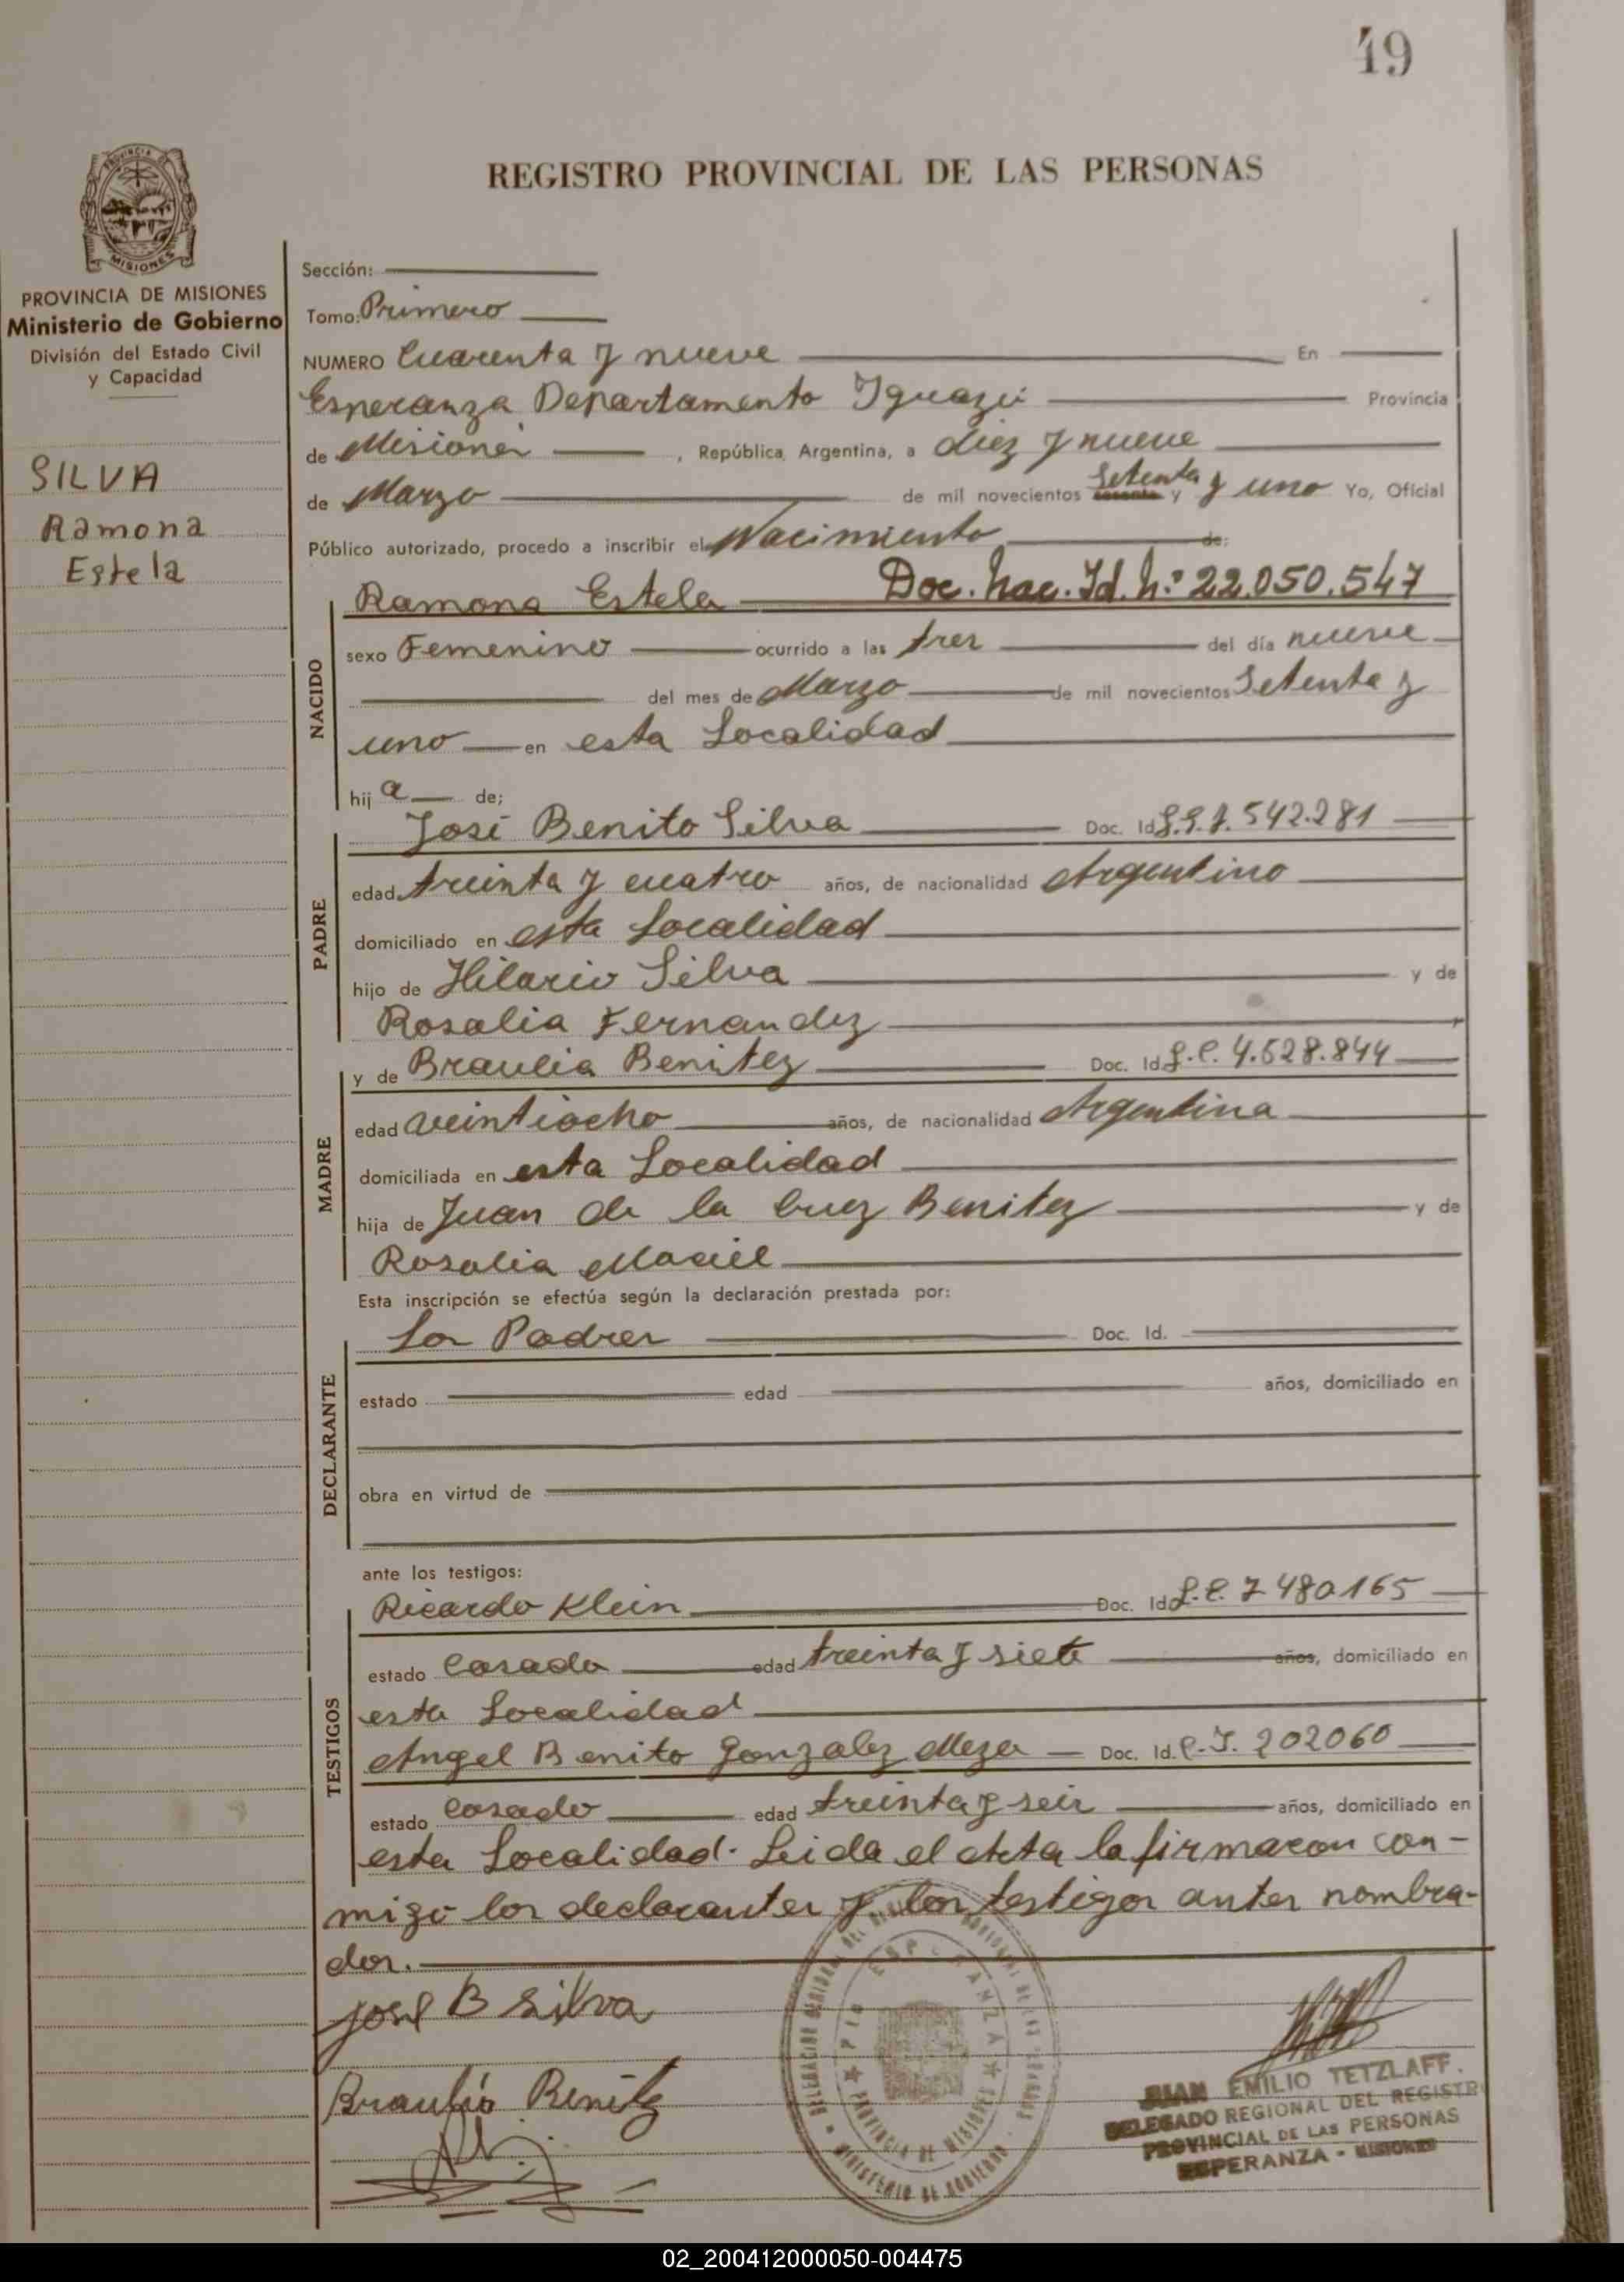 49
REGISTRO PROVINCIAL DE LAS PERSONAS
PROVINCIA DE
MISIONES
PROVINCIA DE MISIONES
Ministerio de Gobierno
División del Estado Civil
y Capacidad
SILVA
Ramona
Estela
Sección:
Tomo: Primero
NUMERO Cuarenta y nueve En
Esperanza Departamento Iguazú Provincia
de Misiones, República Argentina, a diez y nueve
de Marzo de mil novecientos Setenta y y uno Yo, Oficial
Público autorizado, procedo a inscribir el Nacimiento de:
Ramona Estela Doc. Nac. Id. N: 22.050.547
NACIDO
sexo Femenino ocurrido a las tres del día nueve
del mes de Marzo de mil novecientos Setenta y
uno en esta Localidad
hij a de;
José Benito Silva Doc. Id. 7.542.281
PADRE
edad treinta y cuatro años, de nacionalidad Argentino
domiciliado en esta Localidad
hijo de Hilario Silva y de
Rosalia Fernandez
y de Braulia Benitez Doc. Id. L.C. 4.628.844
MADRE
edad veintiocho años, de nacionalidad Argentina
domiciliada en esta Localidad
hija de Juan de la Cruz Benitez y de
Rosalia Maciel
Esta inscripción se efectúa según la declaración prestada por:
Los Padres Doc. Id.
DECLARANTE
estado edad años, domiciliado en
obra en virtud de
ante los testigos:
Ricardo Klein Doc. Id. L.E. 7480165
TESTIGOS
estado Casado edad treinta y siete años, domiciliado en
esta Localidad
Angel Benito Gonzalez Meza Doc. Id. C.I. 202060
estado Casado edad treinta y seis años, domiciliado en
esta Localidad. Leida el Acta la firmaron con-
migo los declarantes y los testigos antes nombra-
dos.
José B Silva
Braulia Benitez
PROVINCIA DE MISIONES
MINISTERIO DE GOBIERNO
JUAN EMILIO TETZLAFF.
DELEGADO REGIONAL DEL REGISTR
PROVINCIAL DE LAS PERSONAS
ESPERANZA - MISIONES
02_200412000050-004475